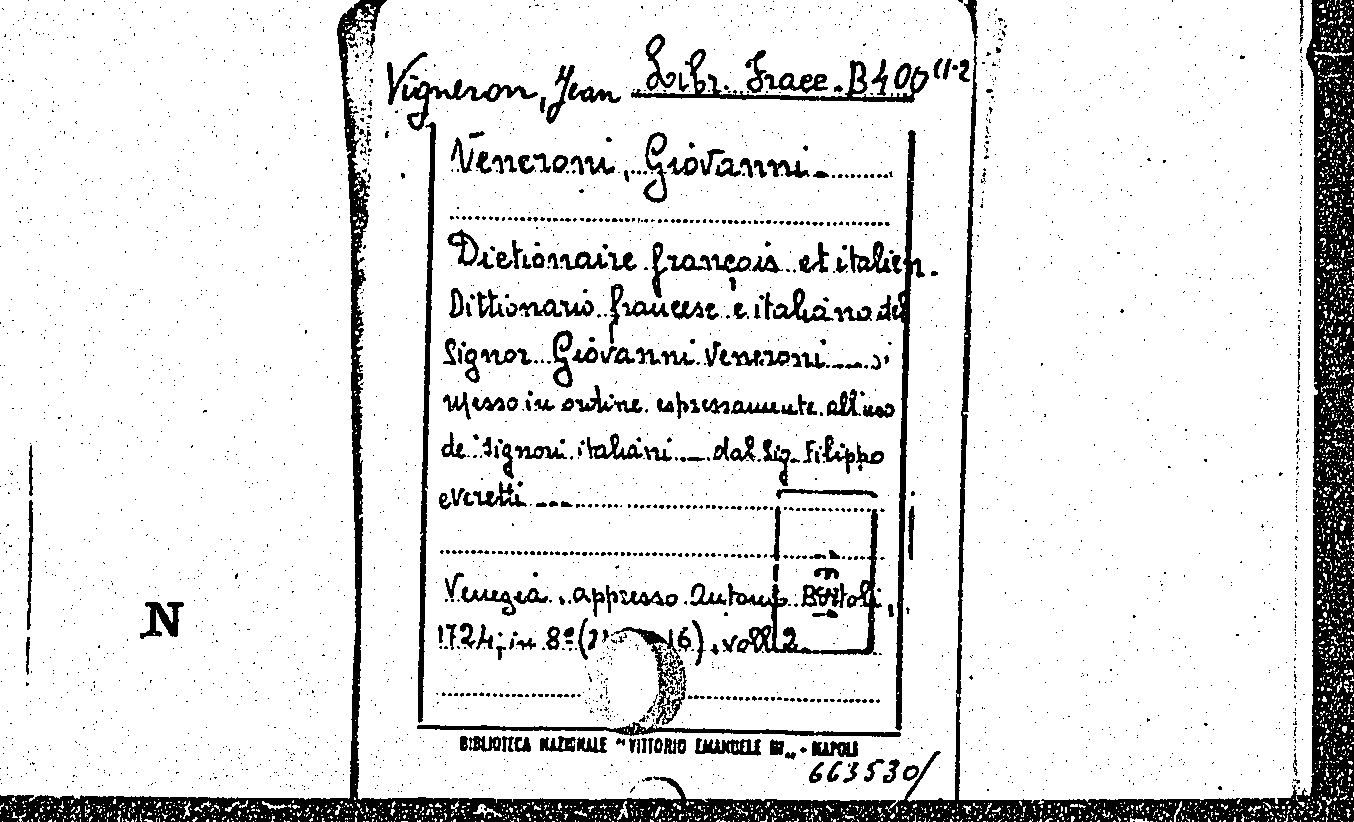 Vigneron, Jean Libr. Frace. B 400 (1-2
Veneroni, Giovanni.
Dictionaire français et italien.
Dittionario francese e italiano del
Signor Giovanni Veneroni ....
messo in ordine espressamente all'uso
de Signori italiani ... dal Sig. Filippo
everetti ....
Venezia, appresso Antonio Bortoli,
1724; in 8º ( 16), voll. 2
N
BIBLIOTECA NAZIONALE "VITTORIO EMANUELE III" - NAPOLI
663530/